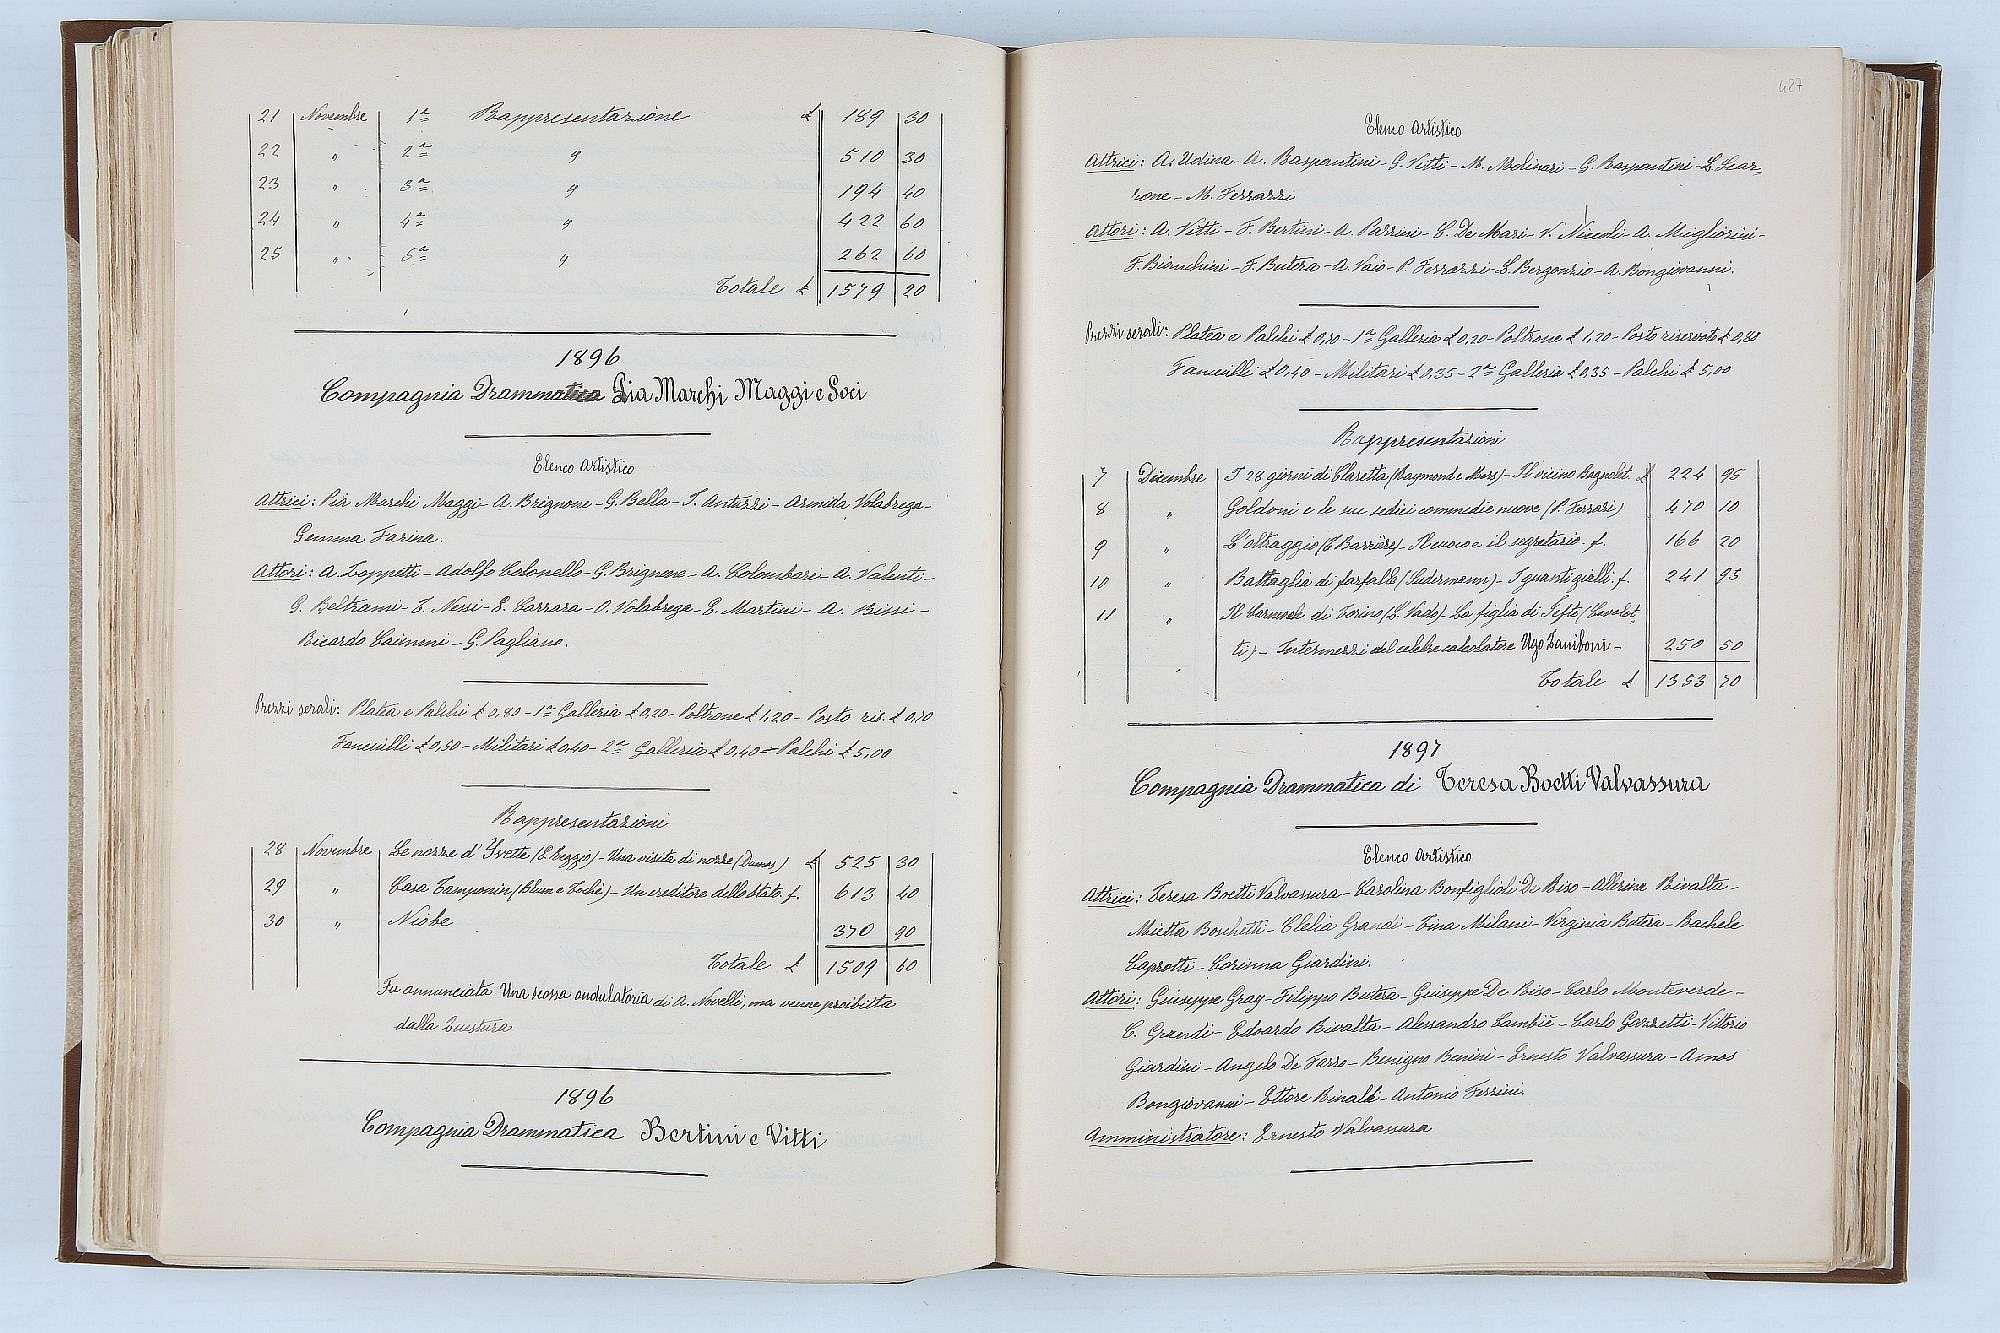 21 Novembre 1ª Rappresentazione £ 189 30
22 " 2ª " 510 30
23 " 3ª " 194 40
24 " 4ª " 422 60
25 " 5ª " 262 60
Totale £ 1579 20
1896
Compagnia Drammatica Pia Marchi Maggi e Soci
Elenco Artistico
Attrici: Pia Marchi Maggi - A. Brignone - G. Bella - I. Antuzzi - Armida Volabrega -
Gemma Farina.
Attori: A. Zoppetti - Adolfo Colonnello - G. Brignone - A. Colombari - A. Valenti -
G. Beltrami - E. Nessi - E. Carrara - O. Volabrega - E. Martini - A. Bissi -
Ricardo Caimmi - G. Pagliano.
Prezzi serali: Platea e Palchi £ 0,80 - 1ª Galleria £ 0,20 - Poltrone £ 1,20 - Posto ris. £ 0,70
Fanciulli £ 0,50 - Militari £ 0,40 - 2ª Galleria £ 0,40 - Palchi £ 5,00
Rappresentazioni
28 Novembre Le nozze d'Yvette (E. Reggio) - Una visita di nozze (Dumas) £ 525 30
29 " Casa Tamponin (Blum e Toché) - Un creditore dello stato. f. 613 40
30 " Niobe 370 90
Totale £ 1509 60
Fu annunciata Una scossa ondulatoria di A. Novelli, ma venne proibitta
dalla Questura
1896
Compagnia Drammatica Bertini e Vitti
427
Elenco Artistico
Attrici: A. Udina A. Raspantini - G. Vitti - M. Molinari - G. Raspantini - L. Scar-
rone - M. Ferrazzi
Attori: A. Vitti - F. Bertini - A. Parrini - C. De Mari - V. Niccoli A. Migliorini -
F. Bianchini - F. Butera - A. Vaio - P. Ferrazzi - L. Bergonzio - A. Bongiovanni.
Prezzi serali: Platea e Palchi £ 0,70 - 1ª Galleria £ 0,20 - Poltrone £ 1,20 - Posto riservato £ 0,80
Fanciulli £ 0,40 - Militari £ 0,35 - 2ª Galleria £ 0,35 - Palchi £ 5,00
Rappresentazioni
7 Dicembre I 28 giorni di Claretta (Raymond e Mars) - Il vicino Bagnolet. £ 224 95
8 " Goldoni e le sue sedici commedie nuove (P. Ferrari) 470 10
9 " L'oltraggio (T. Barrière) - Il cuoco e il segretario. f. 166 20
10 " Battaglia di farfalle (Sudermann) - I guanti gialli. f. 241 93
11 " Il Carnovale di Torino (L. Vado) - La figlia di Jefte (Cavalot-
ti) - Intermezzi del celebre calcolatore Ugo Zaniboni - 250 50
" Totale £ 1353 70
1897
Compagnia Drammatica di Teresa Boetti Valvassura
Elenco Artistico
Attrici: Teresa Boetti Valvassura - Carolina Bonfiglioli De Riso - Allerine Rivalta -
Mietta Borchetti - Clelia Grandi - Tina Milani - Virginia Butera - Rachele
Caprotti - Corinna Giardini.
Attori: Giuseppe Gray - Filippo Butera - Giuseppe De Riso - Carlo Monteverde -
C. Grandi - Edoardo Rivalta - Alessandro Cambiè - Carlo Gazzetti - Vittorio
Giardini - Angelo De Farro - Benigno Benini - Ernesto Valvassura - Amos
Bongiovanni - Ettore Rinald - Antonio Ferrini.
Amministratore: Ernesto Valvassura